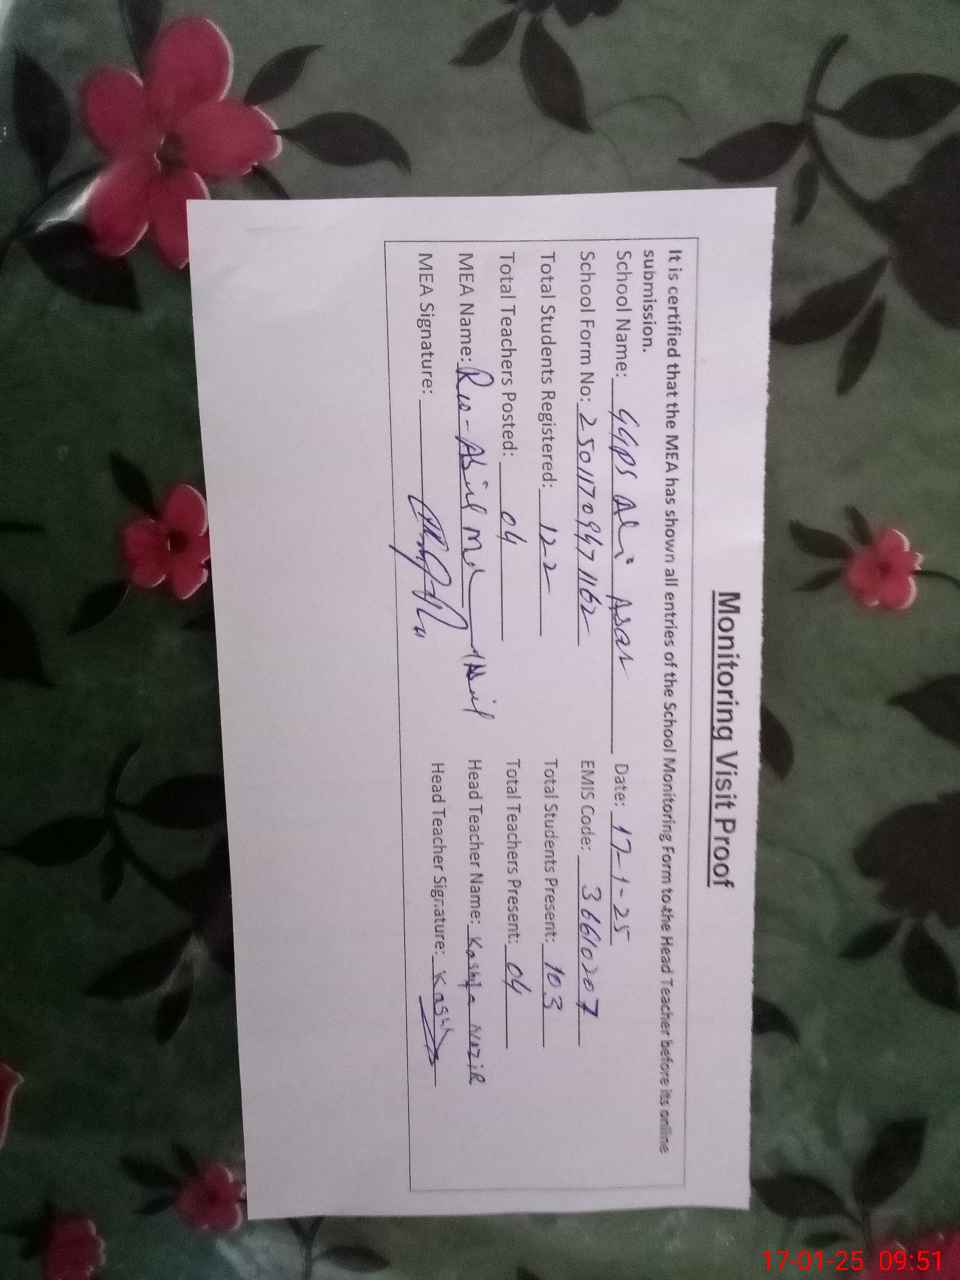 Monitoring Visit Proof
It is certified that the MEA has shown all entries of the School Monitoring Form to the Head Teacher before its online
submission.
School Name: GGPS Ali Asar Date: 17-1-25
School Form No: 25011709471162 EMIS Code: 36610207
Total Students Registered: 122 Total Students Present: 103
Total Teachers Posted: 04 Total Teachers Present: 04
MEA Name: Head Teacher Name: Kashifa Nazir
MEA Signature: Head Teacher Signature:
17-01-25 09:51